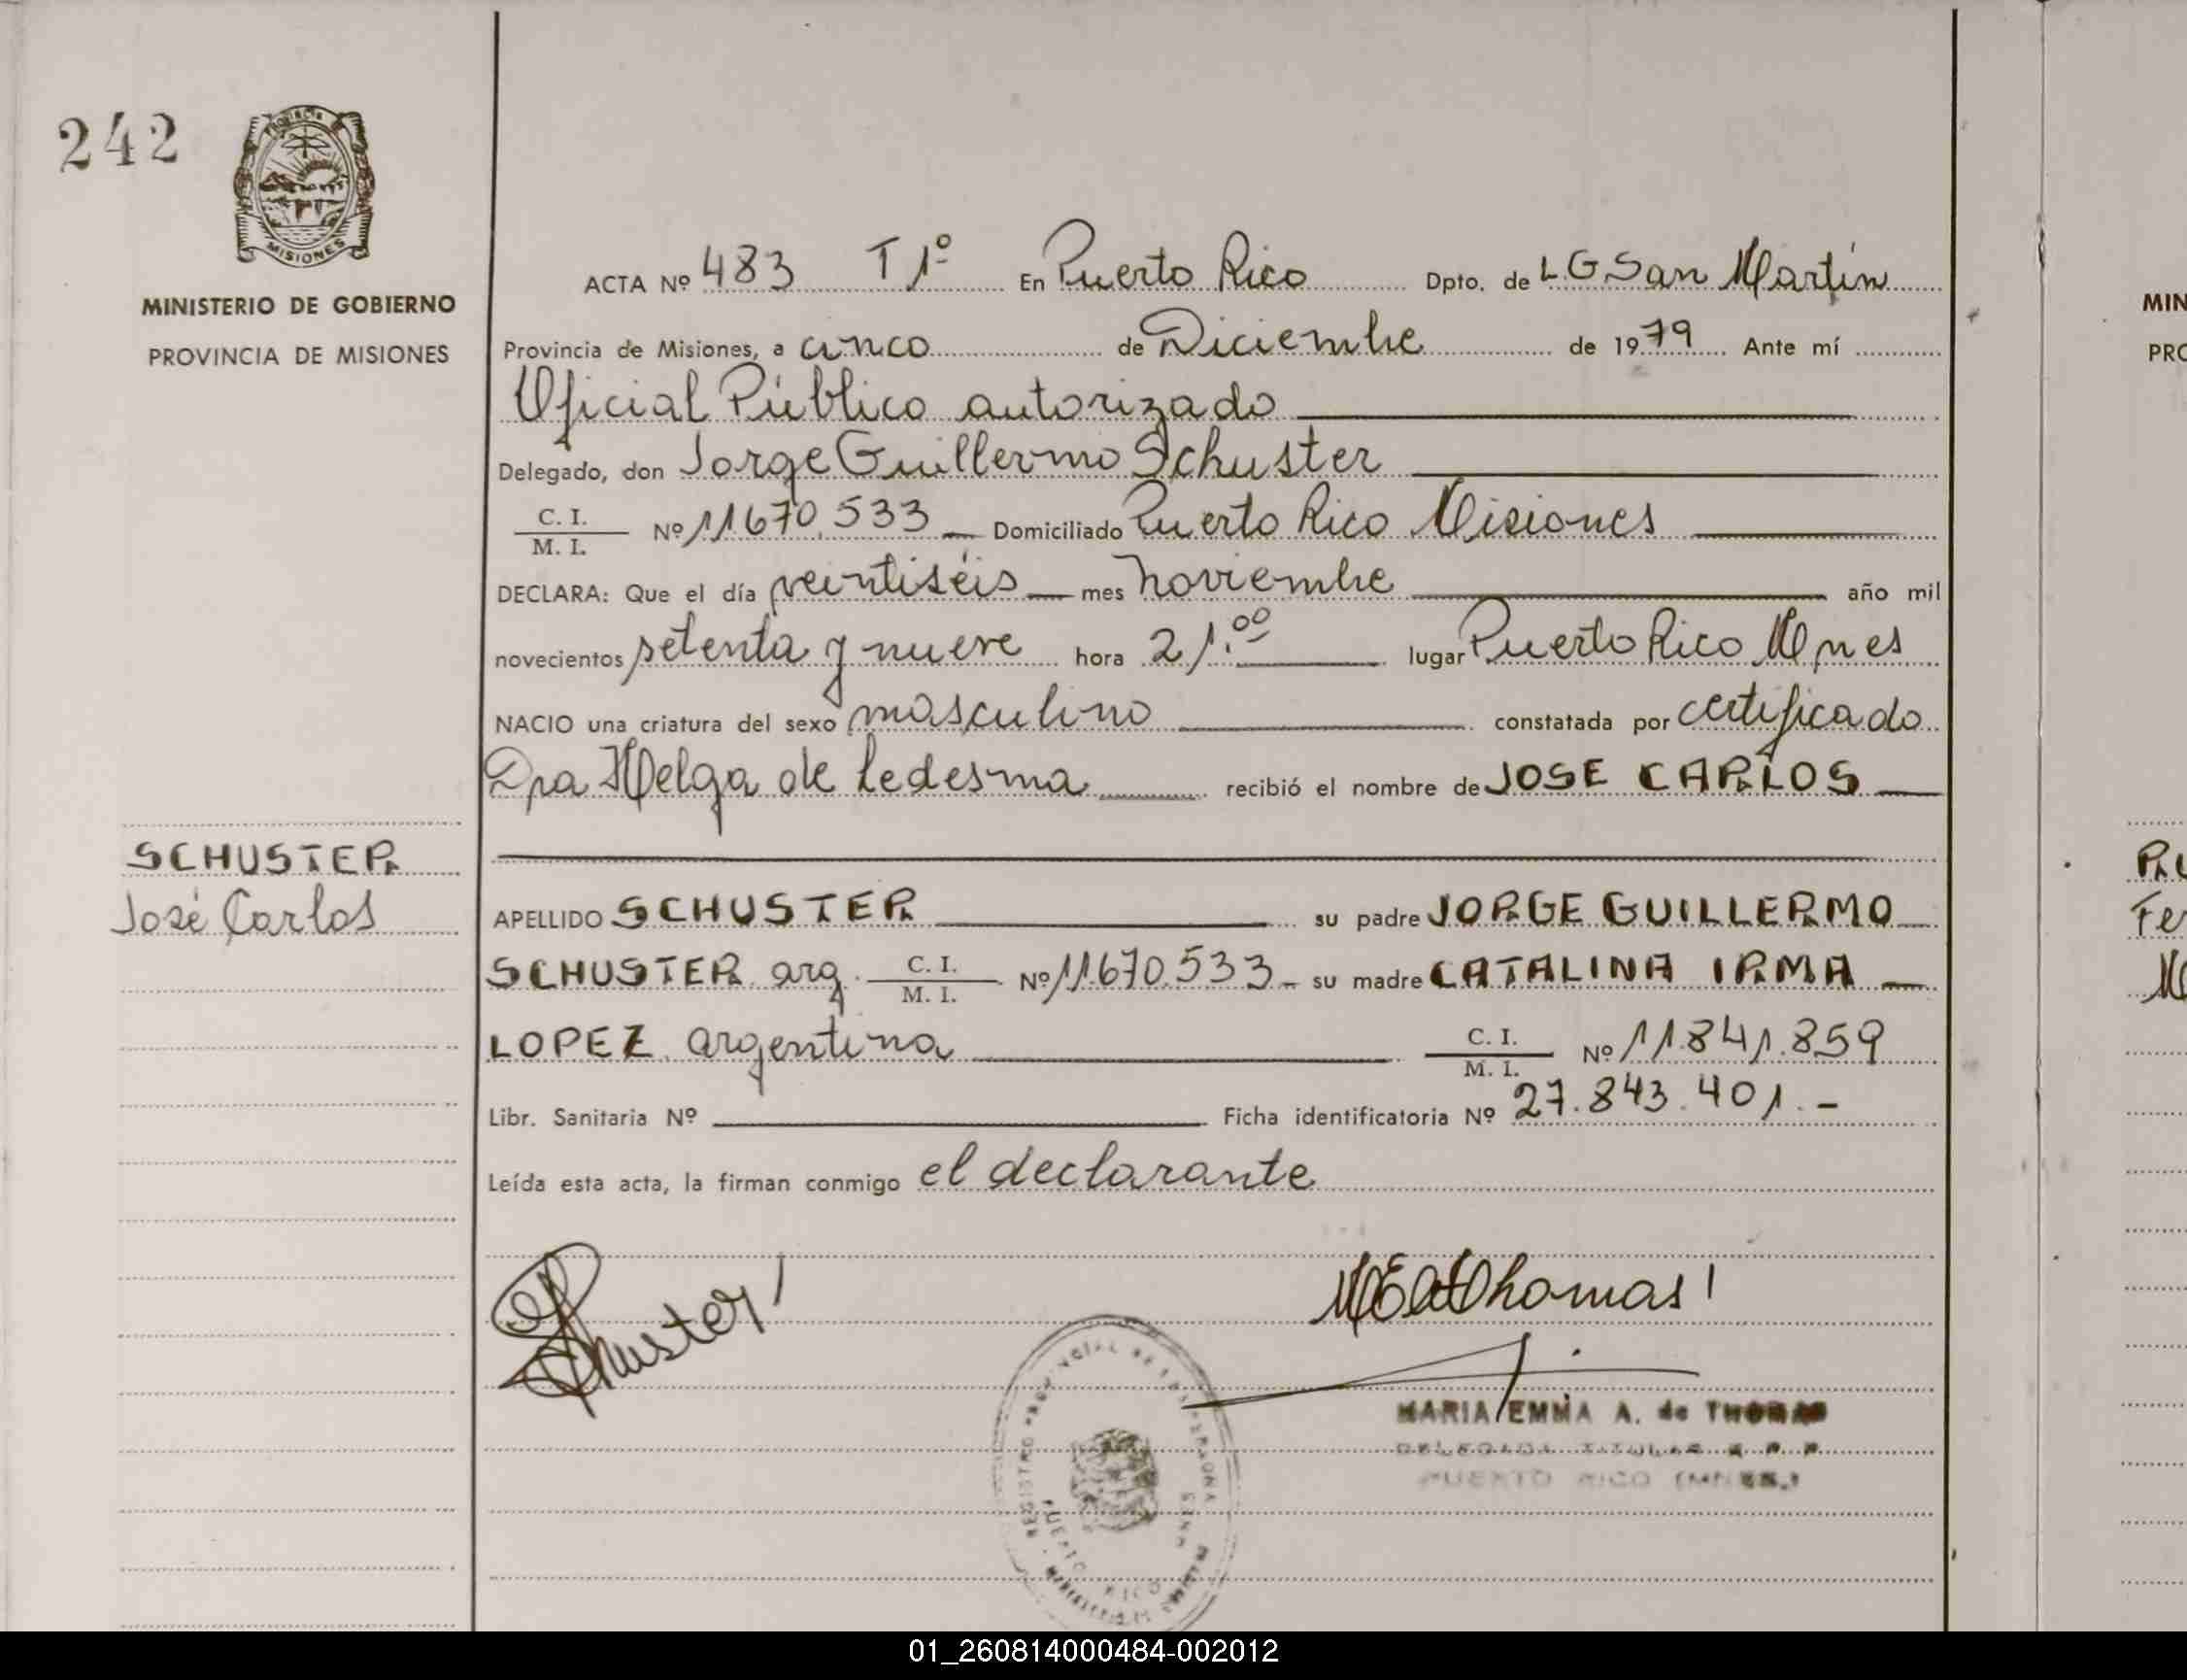 242
PROVINCIA
MISIONES
MINISTERIO DE GOBIERNO
PROVINCIA DE MISIONES
SCHUSTER
José Carlos
ACTA Nº 483 T 1º En Puerto Rico Dpto. de L.G San Martín
Provincia de Misiones, a cinco de Diciembre de 1979 Ante mí
Oficial Público autorizado
Delegado, don Jorge Guillermo Schuster
C. I.
M. I. Nº 11.670.533 Domiciliado Puerto Rico Misiones
DECLARA: Que el día veintiséis mes noviembre año mil
novecientos setenta y nueve hora 21.00 lugar Puerto Rico Mnes
NACIO una criatura del sexo masculino constatada por certificado
Dra Helga de Ledesma recibió el nombre de JOSE CARLOS
APELLIDO SCHUSTER su padre JORGE GUILLERMO
SCHUSTER arg. C. I. M. I. Nº 11.670.533 - su madre CATALINA IRMA
LOPEZ argentina C. I. M. I. Nº 11.841.859
Libr. Sanitaria Nº Ficha identificatoria Nº 27.843.401.-
Leída esta acta, la firman conmigo el declarante
Schuster
MEAdThomas
MARIA EMMA A. de THOMAS
DELEGADA TITULAR R. P. P.
PUERTO RICO (MNES.)
REGISTRO PROVINCIAL DE LAS PERSONAS
PUERTO RICO
MIN
PRO
Fe
01_260814000484-002012